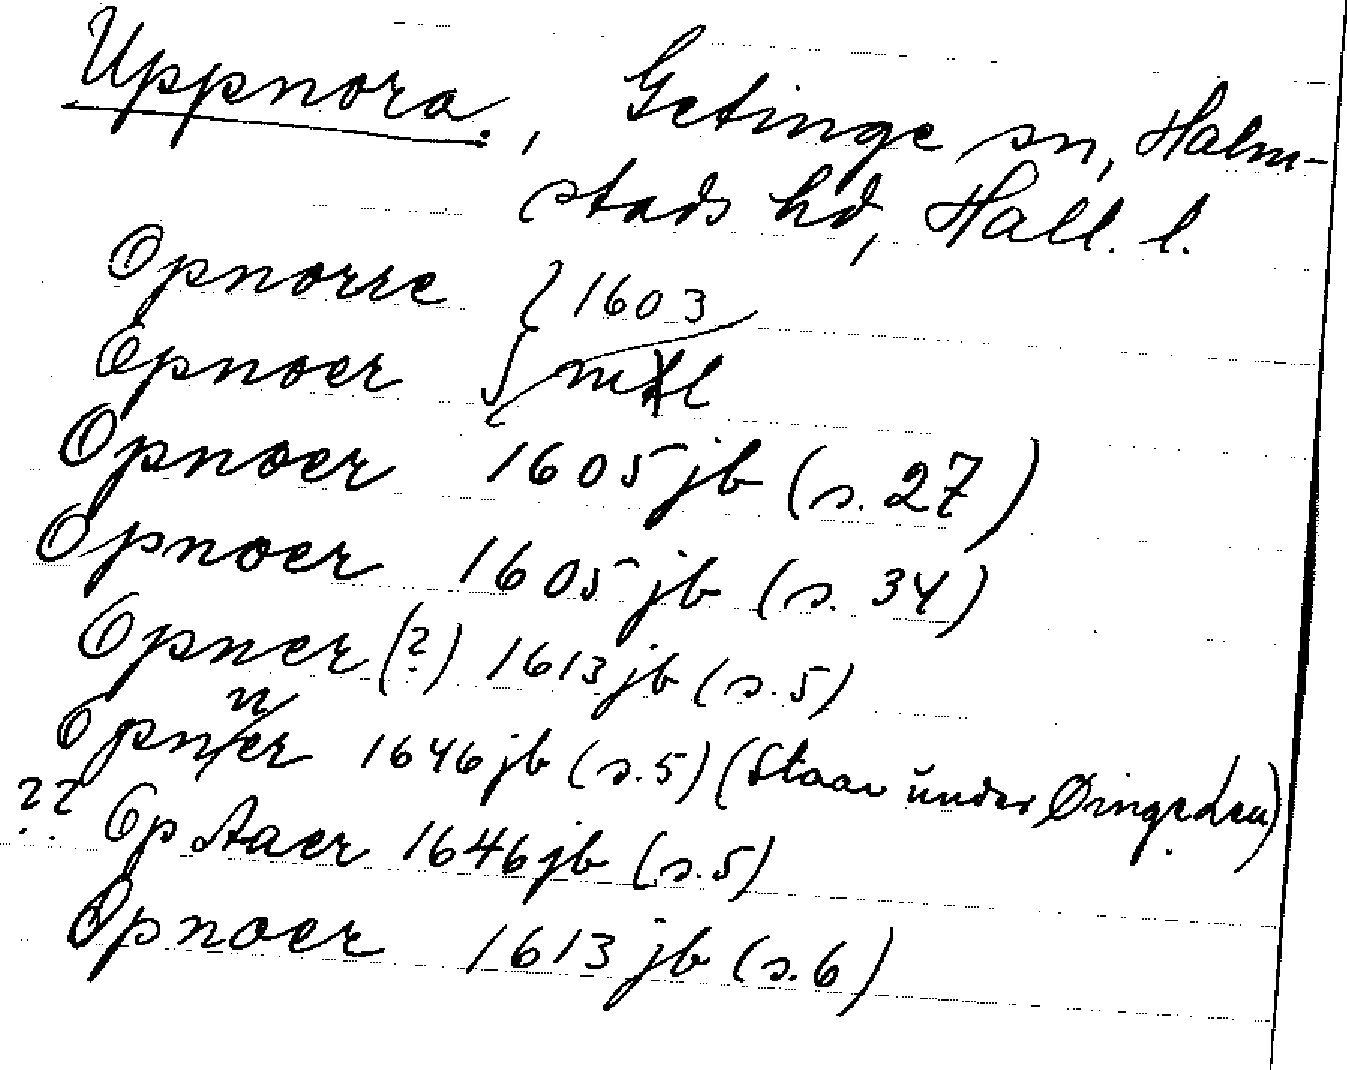 Uppnora, Getinge sn, Halm-
stads hd, Hall. l.
Opnorre } 1603
Opnoer mtl
Opnoer 1605 jb (s. 27)
Opnoer 1605 jb (s. 34)
Opner (?) 1613 jb (s. 5)
n
Opner 1646 jb (s. 5) (Staar under
?? Opstaer 1646 jb (s. 5)
Opnoer 1613 jb (s. 6)